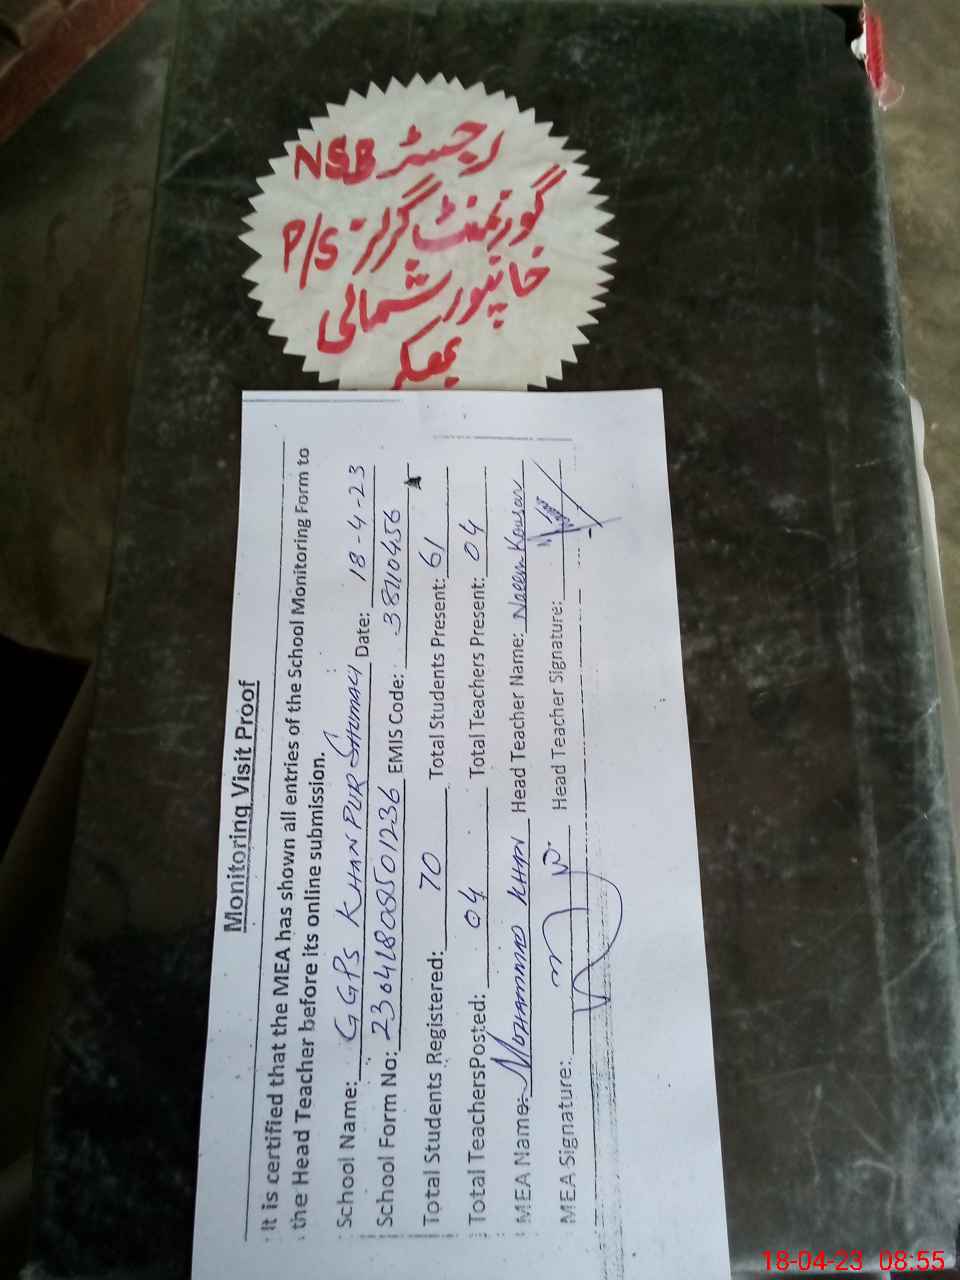 رجسٹر NSB
گورنمنٹ گرلز P/S
خانپور شمالی
بھکر
Monitoring Visit Proof
It is certified that the MEA has shown all entries of the School Monitoring Form to
the Head Teacher before its online submission.
School Name: GGPS KHANPUR SHUMALI Date: 18-4-23
School Form No: 23041808501236 EMIS Code: 38110456
Total Students Registered: 70 Total Students Present: 61
Total TeachersPosted: 04 Total Teachers Present: 04
MEA Name: MUHAMMAD KHAN Head Teacher Name: Naeem Kousar
MEA Signature: Head Teacher Signature:
18-04-23 08:55